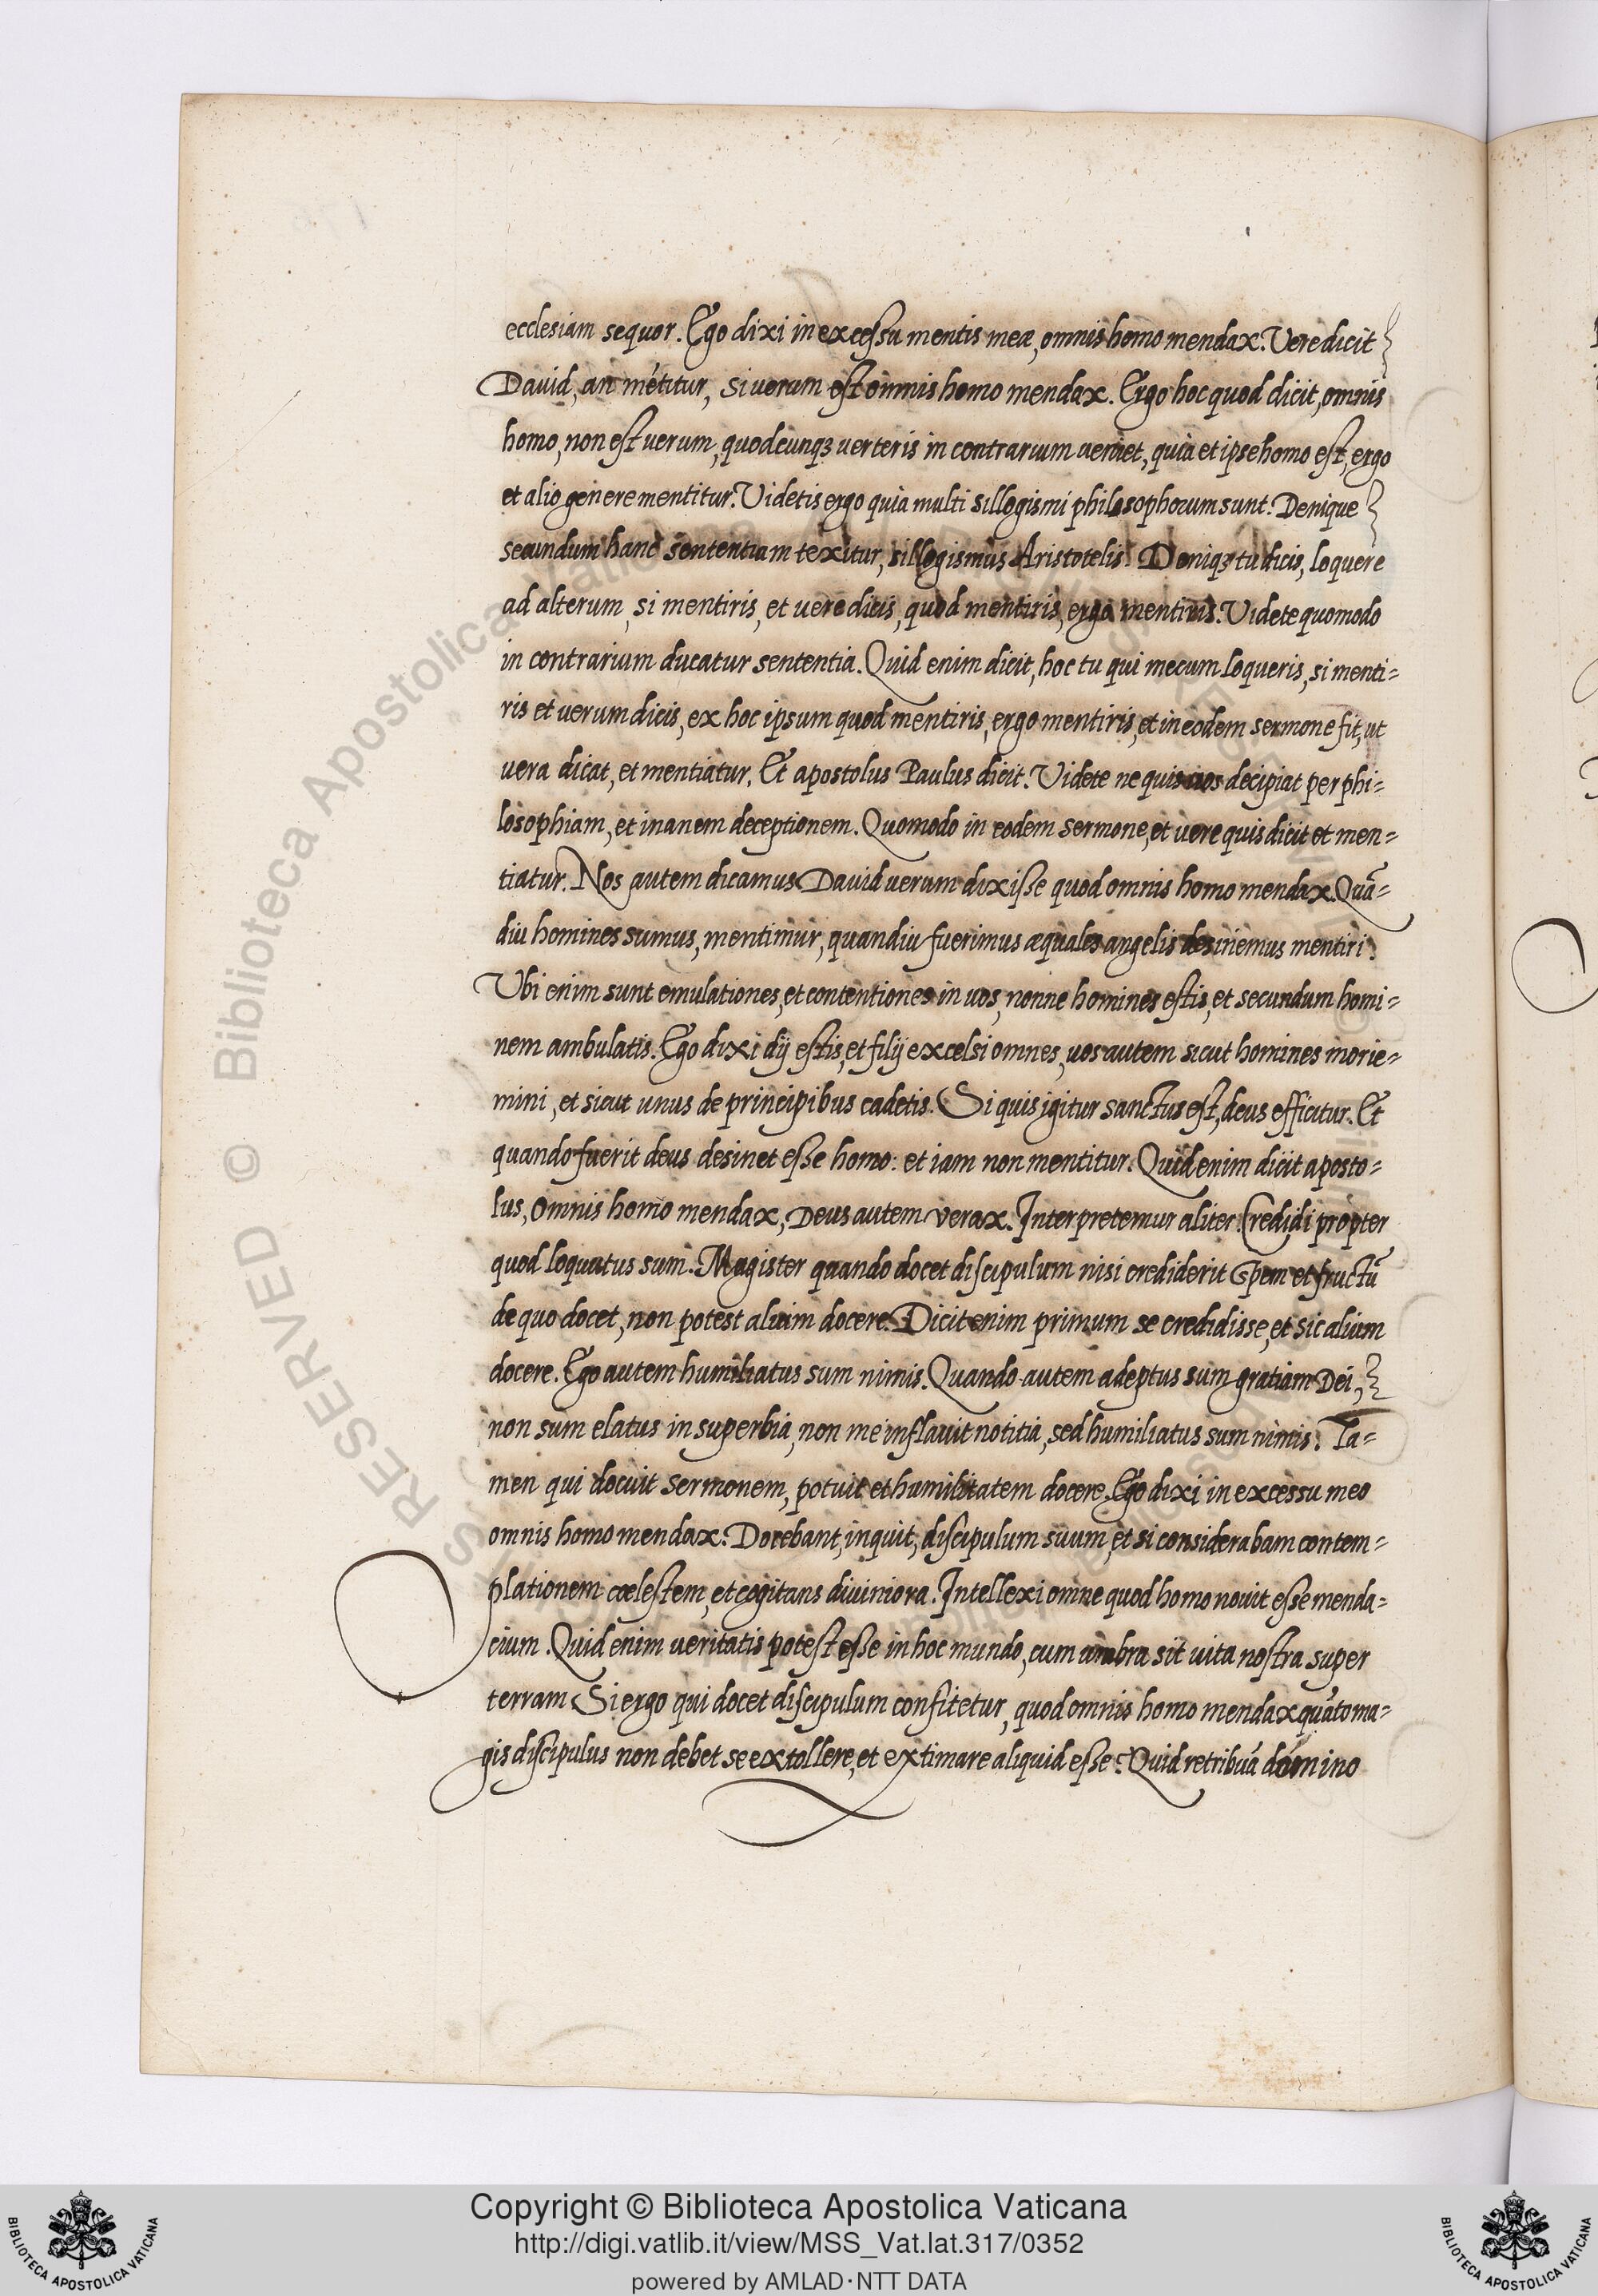 ecclesiam sequor. Ego dixi in excessu mentis meæ, omnis homo mendax. Vere dicit
David, an métitur, si verum est omnis homo mendax. Ergo hoc quod dicit, omnis
homo, non est uerum, quodcunq3 uerteris in contrarium ueniet, quia et ipse homo est, ergo
et alio genere mentitur. Videtis ergo quia multi sillogismi philosophorum sunt. Denique
secundum hanc sententiam texitur, sillogismus Aristotelis. Deniq3 tu dicis, loquere
ad alterum, si mentiris, et uere dicis, quod mentiris, ergo mentiris. Videte quomodo
in contrarium ducatur sententia. Quid enim dicit, hoc tu qui mecum loqueris, si menti=
ris et uerum dicis, ex hoc ipsum quod mentiris, ergo mentiris, et in eodem sermone fit, ut
uera dicat, et mentiatur. Et apostolus Paulus dicit. Videte ne quis uos decipiat per phi=
losophiam, et inanem deceptionem. Quomodo in eodem sermone, et uere quis dicit et men=
tiatur. Nos autem dicamus David uerum dixisse quod omnis homo mendax. Quā=
diu homines sumus, mentimur, quandiu fuerimus æquales angelis desinemus mentiri.
Vbi enim sunt emulationes, et contentiones in uos, nonne homines estis, et secundum homi=
nem ambulatis. Ego dixi dij estis, et filij excelsi omnes, uos autem sicut homines morie=
mini, et sicut unus de principibus cadetis. Si quis igitur sanctus est, deus efficitur. Et
quando fuerit deus desinet esse homo: et iam non mentitur. Quid enim dicit aposto=
lus, Omnis homo mendax, Deus autem verax. Interpretemur aliter. Credidi propter
quod loquutus sum. Magister quando docet discipulum nisi crediderit spem et fructū
de quo docet, non potest alium docere. Dicit enim primum se credidisse, et sic alium
docere. Ego autem humiliatus sum nimis. Quando autem adeptus sum gratiam Dei,
non sum elatus in superbia, non me inflauit notitia, sed humiliatus sum nimis. Ta=
men qui docuit sermonem, potuit et humilitatem docere. Ego dixi in excessu meo
omnis homo mendax. Docebant, inquit, discipulum suum, et si considerabam contem=
plationem cœlestem, et cogitans diviniora. Intellexi omne quod homo nouit esse menda=
cium. Quid enim veritatis potest esse in hoc mundo, cum umbra sit uita nostra super
terram Si ergo qui docet discipulum confitetur, quod omnis homo mendax quāto ma=
gis discipulus non debet se extollere, et extimare aliquid esse. Quid retribuā domino
Copyright © Biblioteca Apostolica Vaticana
http://digi.vatlib.it/view/MSS_Vat.lat.317/0352
powered by AMLAD·NTT DATA